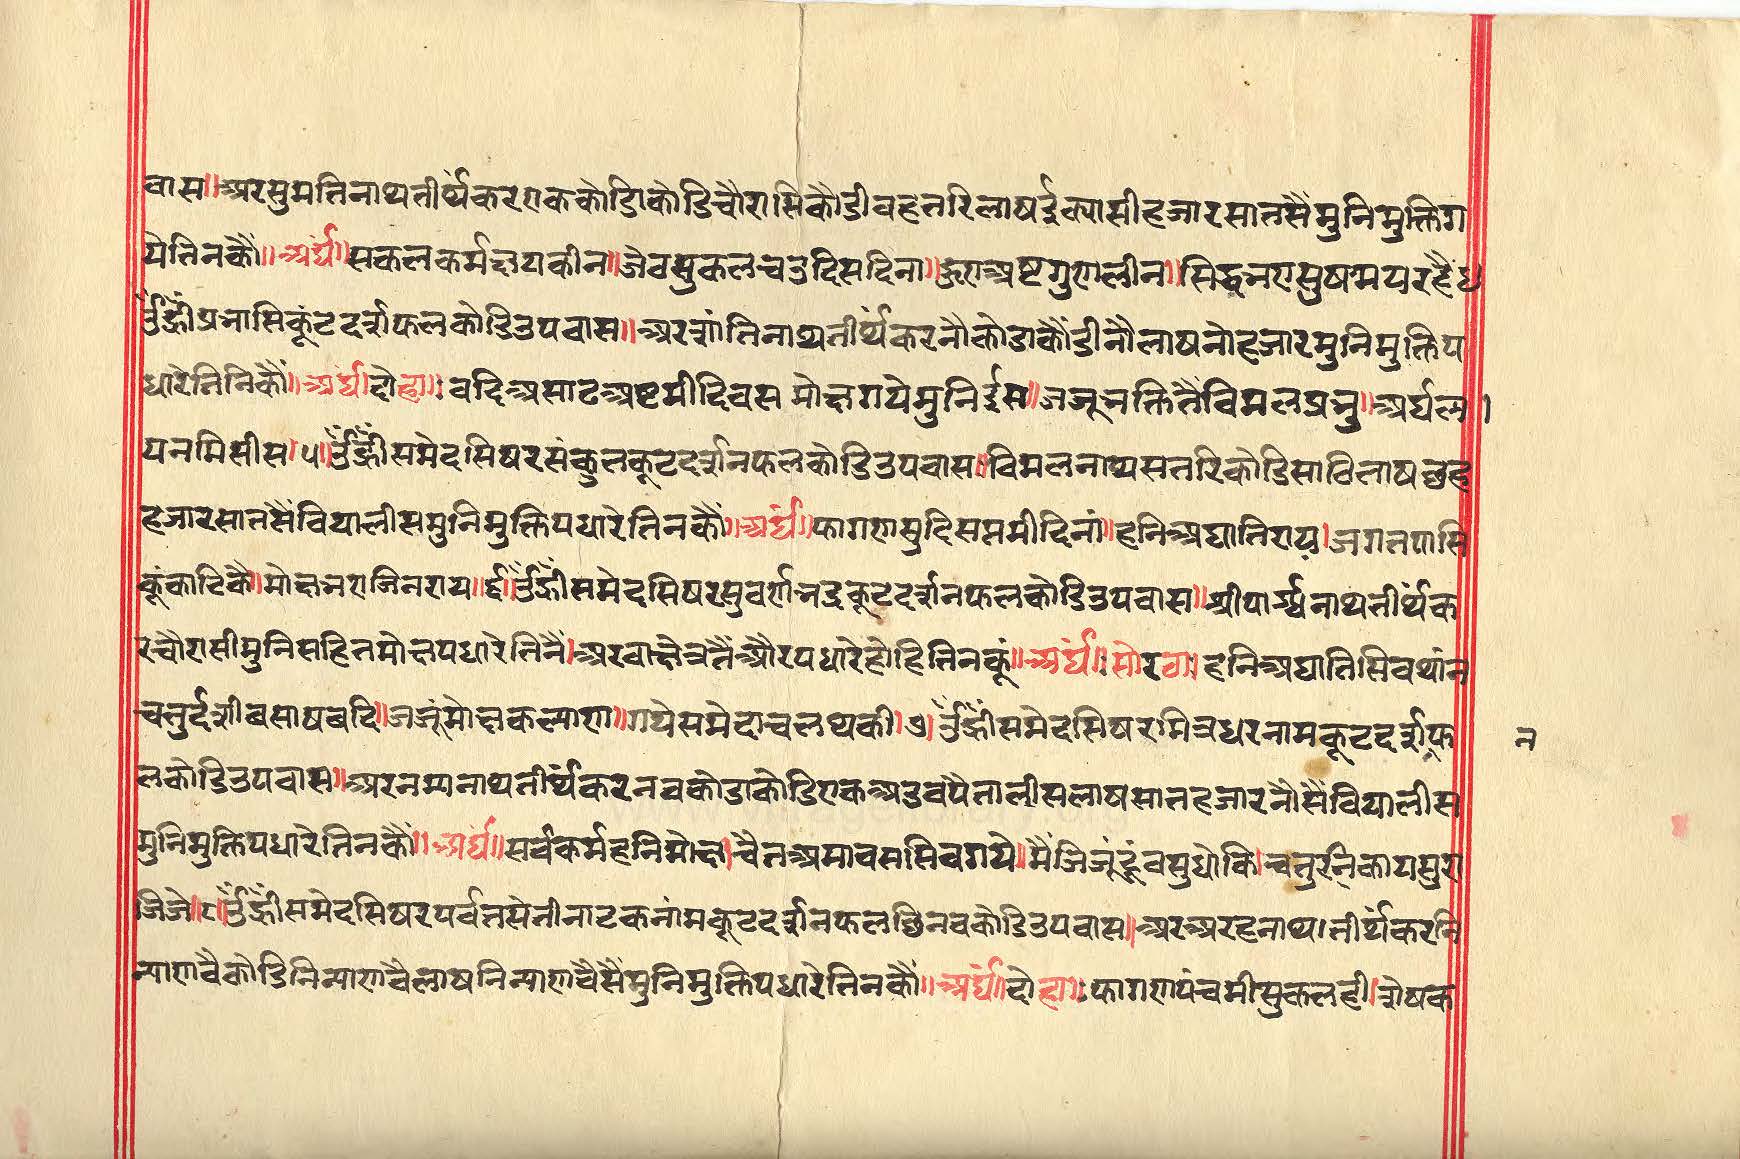 वास॥अरसुमतिनाथतीर्थंकरएककोडाकोडिचौरासिकौडीवहतरिलाषईक्यासीहजारसातसैमुनिमुक्तिग
येतिनकौं॥अर्घं॥सकलकर्मक्षयकीन॥जेवसुकलचउदिसदिना॥हुएअष्टगुणलीन॥सिद्धनए सुषमय रहैं॥४
उँह्रींप्रनासिकूंटदर्शफलकोडिउपवास॥अरशांतिनाथतीर्थंकरनौकोडाकौडीनौलाषनोहजारमुनिमुक्तिप
धारेतिनिकौं॥अर्घं।दोहा॥वदिअसाटअष्टमीदिवस मोक्षगयेमुनिईस॥जजूनक्तितैविमलप्रनु॥अर्घल।
यनमिसीस।५।उँह्रींसमेदसिषरसंकुलकूटदर्शनफलकोडिउपवास॥विमलनाथसतरिकोडिसाठिलाषछह
हजारसातसैंवियालीसमुनिमुक्तिपधारेतिनकौं॥अर्घं॥फागणसुदिसप्तमीदिनां॥हनिअघातिराय।जगतपासि
कूंकाटिकै॥मोक्षनएजिनराय॥६॥उँह्रींसमेदसिषरसुवर्णनद्रकूटदर्शनफलकोडिउपवास॥श्रीपार्श्वनाथतीर्थंक
रचौरासीमुनिसहितमोक्षपधारेतिनैं।अरवाक्षेत्रतैंऔरपधारेहोहितिनकूं॥अर्घं॥सोरठा।हनिअघातिसिवथांन
चतुर्दशीबसाषबदि॥जजूंमोक्षकल्याण॥गयेसमेदाचलथकी।७।उँह्रींसमेदसिषरमित्रधरनामकूटदर्शफ न
लकोडिउपवास॥अरनमानाथतीर्थंकरनवकोडाकोडिएकअडवपैतालीसलाषसातहजारनौसैंवियालीस
मुनिमुक्तिपधारेतिनकौं॥अर्घं॥सर्वकर्महनिमोक्ष।चैतअमावससिवगये॥मैंजिजूंहूंवसुधोकि।चतुरनिकायसुरा
जिजे॥८॥उँह्रींसमेदसिषरपर्वतसेनीनाटकनांमकूटदर्शनफलछिनवकोडिउपवास॥अरअरहनाथ।तीर्थंकरनि
न्याणवैकोडिनिन्याणवैलाषनिन्याणवैसैंमुनिमुक्तिपधारेतिनकौं॥अर्घं॥दोहा॥फागणपंचमीसुकलही।शेषक